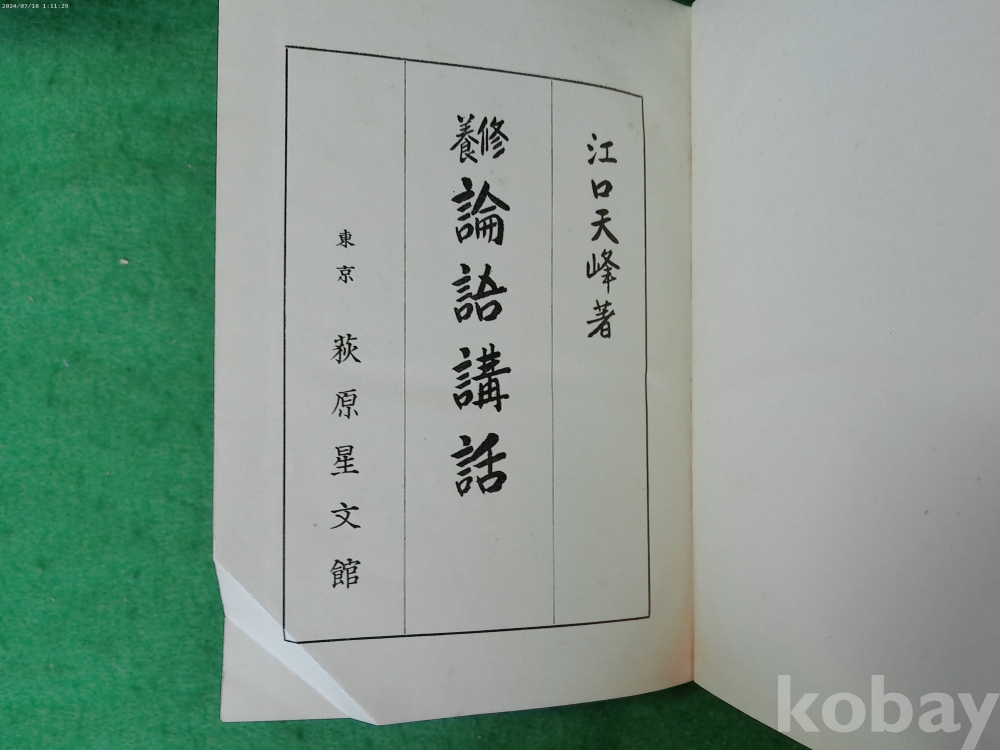 2024/07/18 1:11:29
江口天峰著
修養
論語講話
東京 萩原星文館
kobay